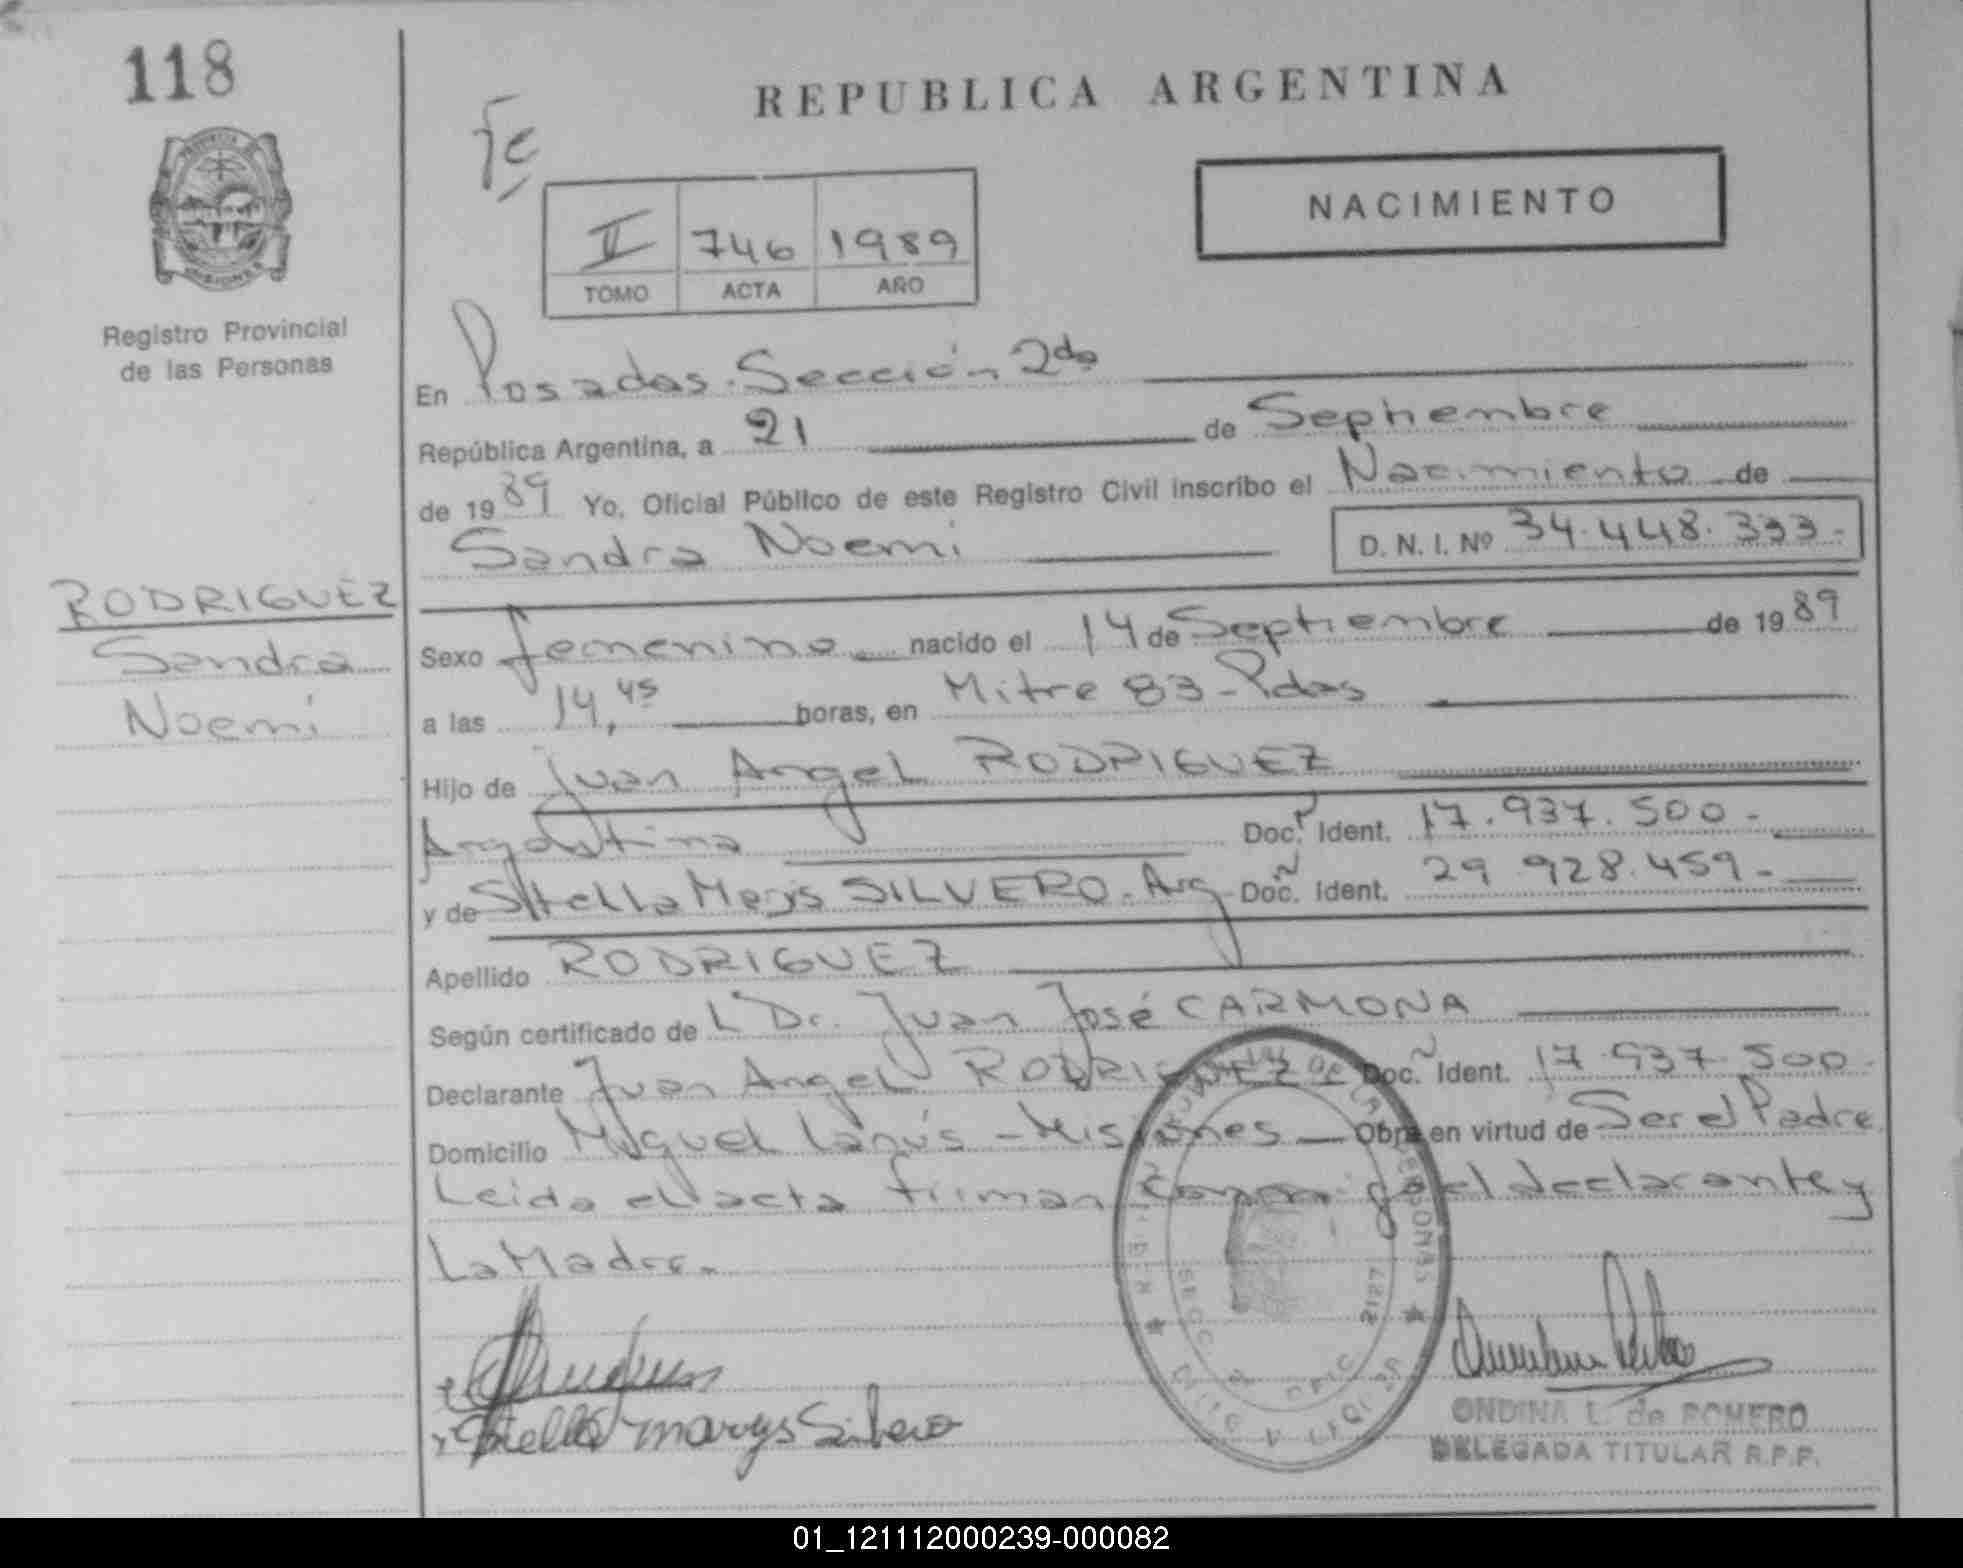 118
REPUBLICA ARGENTINA
NACIMIENTO
II 746 1989
TOMO ACTA AÑO
Registro Provincial
de las Personas
En Posadas. Sección 2da
República Argentina, a 21 de Septiembre
de 1989 Yo, Oficial Público de este Registro Civil inscribo el Nacimiento de
Sandra Noemi D. N. I. Nº 34.448.333-
RODRIGUEZ
Sandra
Noemi
Sexo femenino nacido el 14 de Septiembre de 1989
a las 14,45 horas, en Mitre 83 - Pdas
Hijo de Juan Angel RODRIGUEZ
Argentina Doc. Ident. 17.937.500-
y de Stella Marys SILVERO. Arg Doc. Ident. 29.928.459-
Apellido RODRIGUEZ
Según certificado de L Dr. Juan José CARMONA
Declarante Juan Angel RODRIGUEZ Doc. Ident. 17.937.500-
Domicilio Miguel Lanús - Misiones - Obra en virtud de Ser el Padre
Leida el acta firman conmigo el declarante y
La Madre.
Stella marys Silvero
SECC. 2 OFIC. 2127
ONDINA L. de ROMERO
DELEGADA TITULAR R.P.P.
01_121112000239-000082